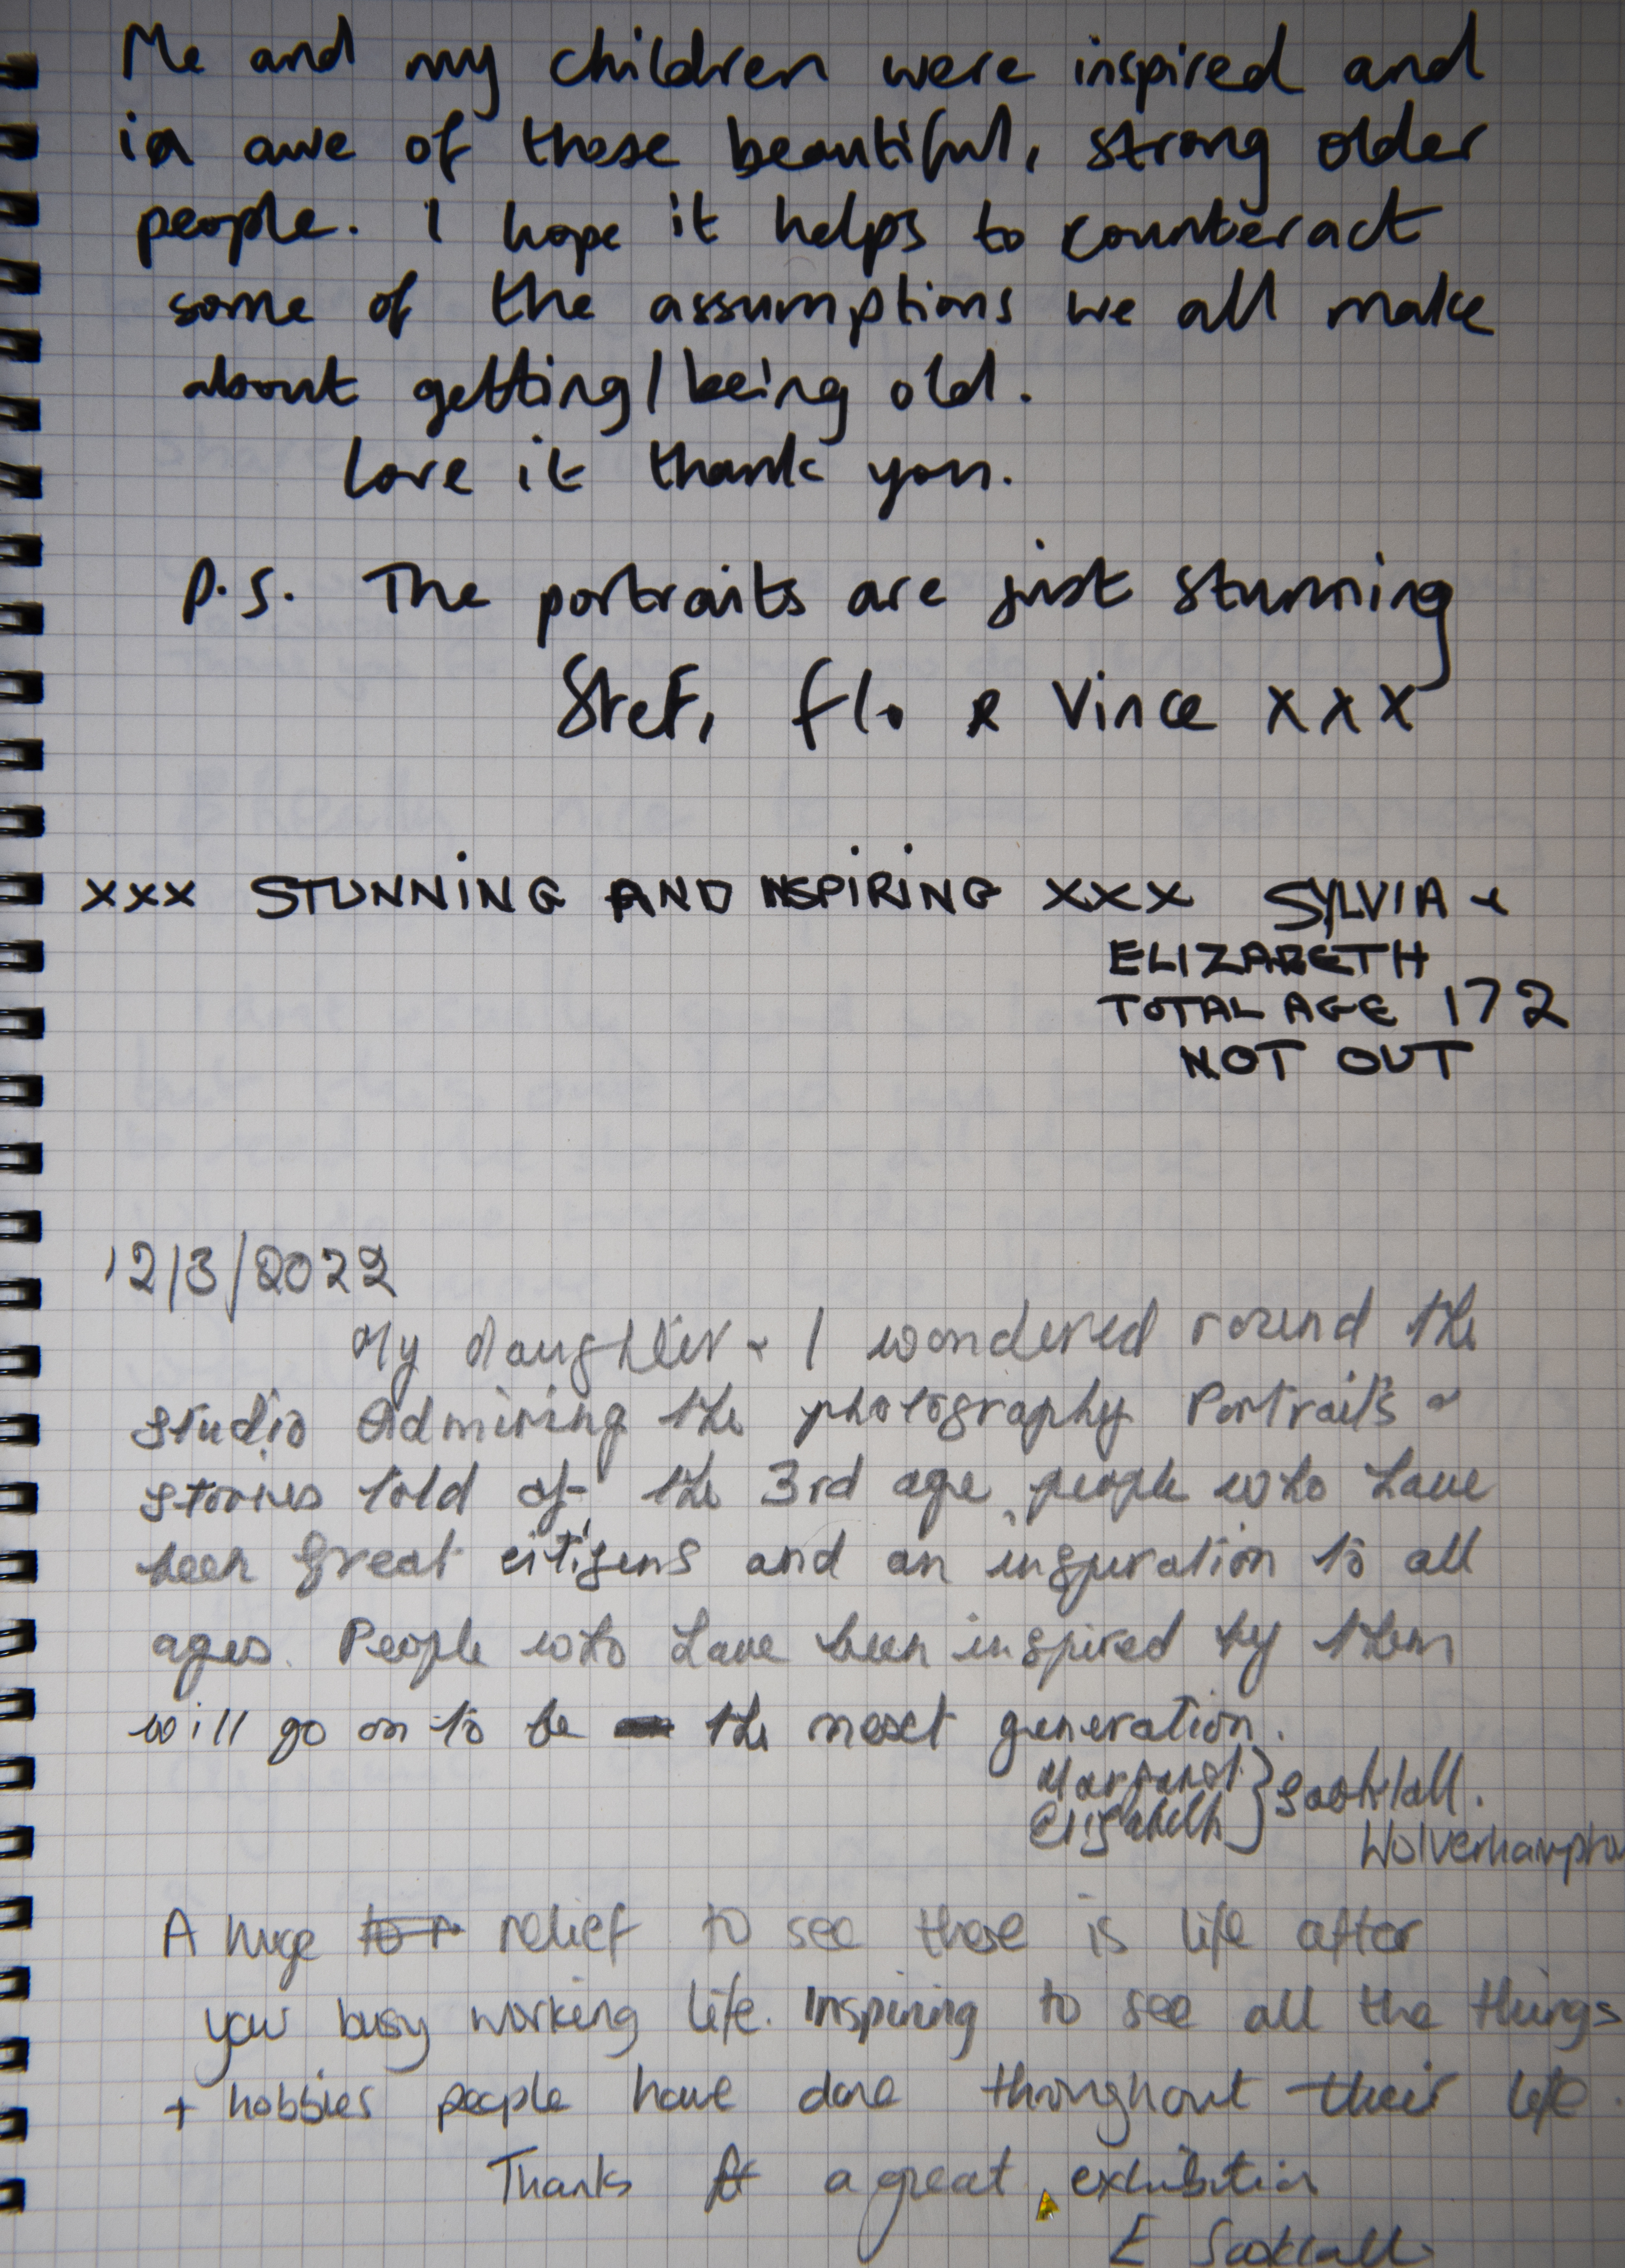 Me and my children were inspired and
in awe of these beautiful, strong older
people. I hope it helps to counteract
some of the assumptions we all make
about getting/being old.
Love it thank you.
P.S. The portraits are just stunning
Stef, Flo & Vince xxx
xxx STUNNING AND INSPIRING xxx SYLVIA +
ELIZABETH
TOTAL AGE 172
NOT OUT
12/3/2022
My daughter + I wondered round the
studio Admiring the photography Portraits &
stories told of the 3rd age, people who have
been great citizens and an inspiration to all
ages. People who have been inspired by them
will go on to be the next generation.
Margaret
Elizabeth
Wolverhampton
A huge relief to see there is life after
your busy working life. Inspiring to see all the things
+ hobbies people have done throughout their life.
Thanks for a great exhibition
E